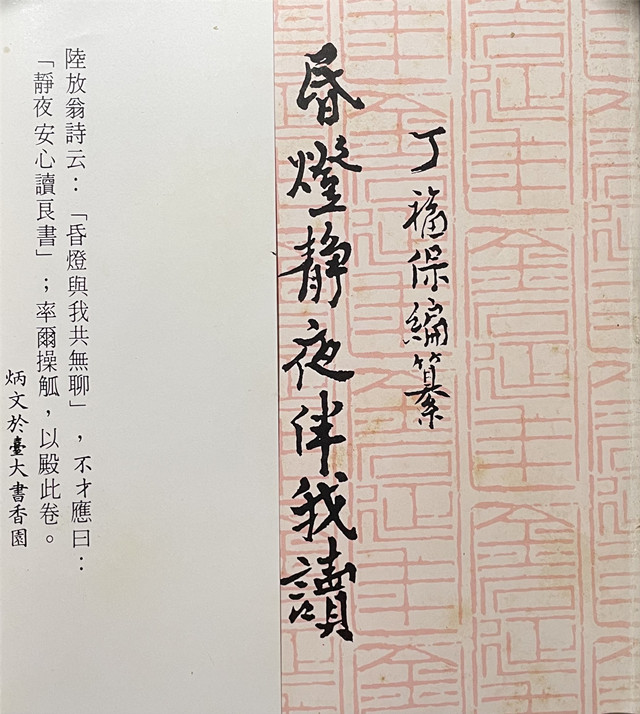 丁福保編纂
昏燈靜夜伴我讀
陸放翁詩云：「昏燈與我共無聊」，不才應曰：
「靜夜安心讀良書」；率爾操觚，以殿此卷。
炳文於臺大書香園